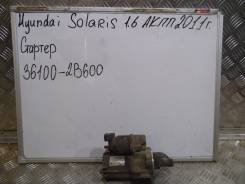 Hyundai Solaris 1.6 АКПП 2011г.
Стартер
36100-2B600